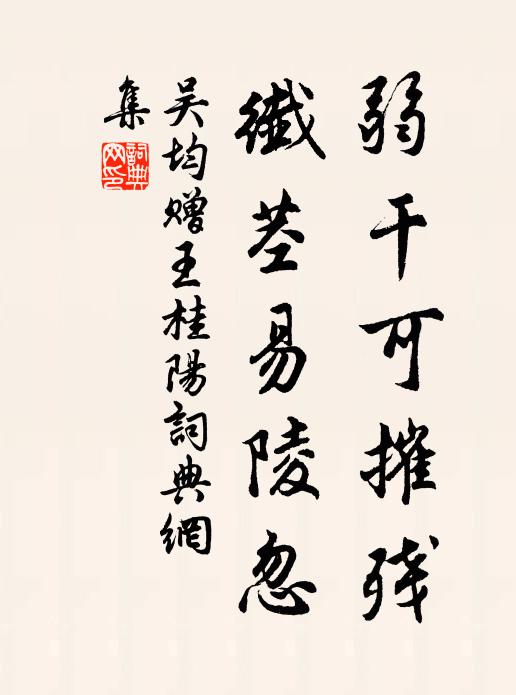 弱干可摧残
纖莖易陵忽
吴均赠王桂陽詞典網
集
詞典
网印